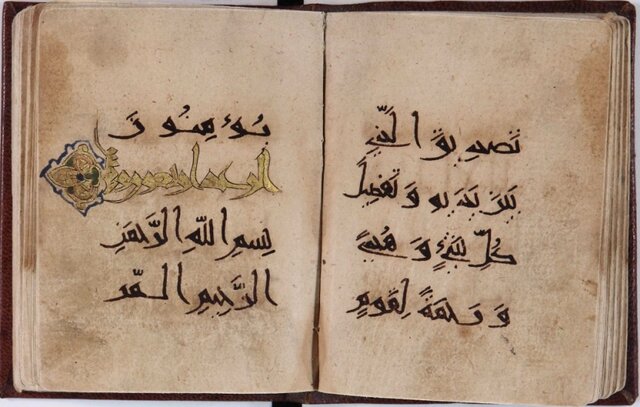 تَصْدِيقَ الَّذِي
بَيْنَ يَدَيْهِ وَتَفْصِيلَ
كُلِّ شَيْءٍ وَهُدًى
وَرَحْمَةً لِقَوْمٍ
يُؤْمِنُونَ
بِسْمِ اللَّهِ الرَّحْمَنِ
الرَّحِيمِ الـمّر